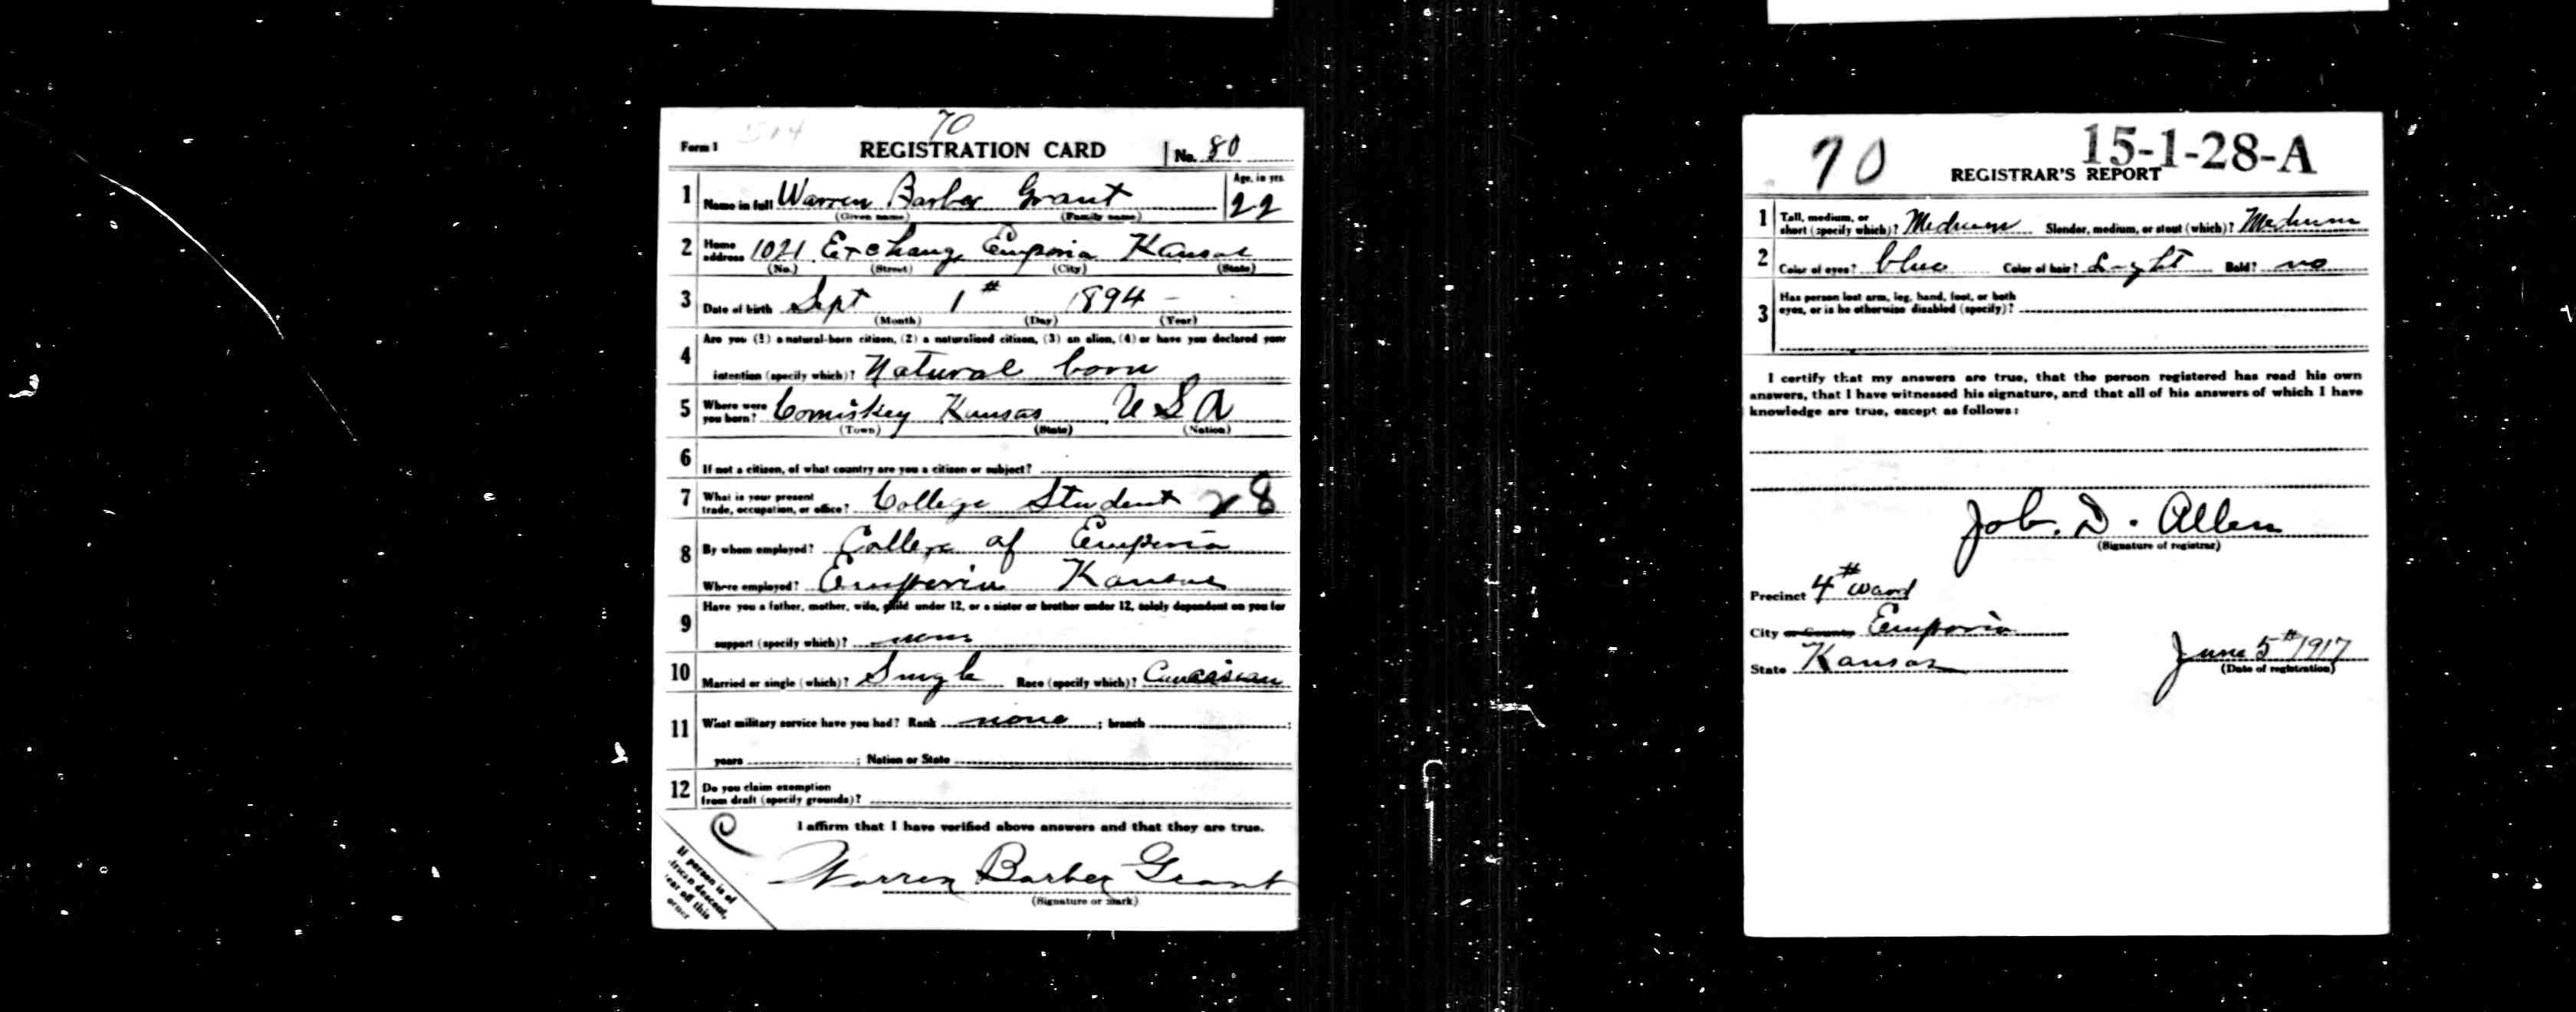 70
Form 1 REGISTRATION CARD No. 80
1 Name in full Warren Barber Grant Age, in yrs. 22
(Given name) (Family name)
2 Home address 1021 Exchang Emporia Kansas
(No.) (Street) (City) (State)
3 Date of birth Sept 1 # 1894
(Month) (Day) (Year)
4 Are you (1) a natural-born citizen, (2) a naturalized citizen, (3) an alien, (4) or have you declared your
intention (specify which)? Natural born
5 Where were you born? Comiskey Kansas, U S A
(Town) (State) (Nation)
6 If not a citizen, of what country are you a citizen or subject?
7 What is your present trade, occupation, or office? College Student 28
8 By whom employed? College of Emporia
Where employed? Emporia Kansas
9 Have you a father, mother, wife, child under 12, or a sister or brother under 12, solely dependent on you for
support (specify which)? none
10 Married or single (which)? Single Race (specify which)? Caucasian
11 What military service have you had? Rank none ; branch ;
years ; Nation or State
12 Do you claim exemption
from draft (specify grounds)?
I affirm that I have verified above answers and that they are true.
Warren Barber Grant
(Signature or mark)
If person is of
African descent,
tear off this
corner
70 15-1-28-A
REGISTRAR'S REPORT
1 Tall, medium, or short (specify which)? Medium Slender, medium, or stout (which)? Medium
2 Color of eyes? blue Color of hair? Light Bald? no
3 Has person lost arm, leg, hand, foot, or both
eyes, or is he otherwise disabled (specify)?
I certify that my answers are true, that the person registered has read his own
answers, that I have witnessed his signature, and that all of his answers of which I have
knowledge are true, except as follows:
Job. D. Allen
(Signature of registrar)
Precinct 4 # Ward
City or County Emporia
State Kansas
June 5 # 1917
(Date of registration)